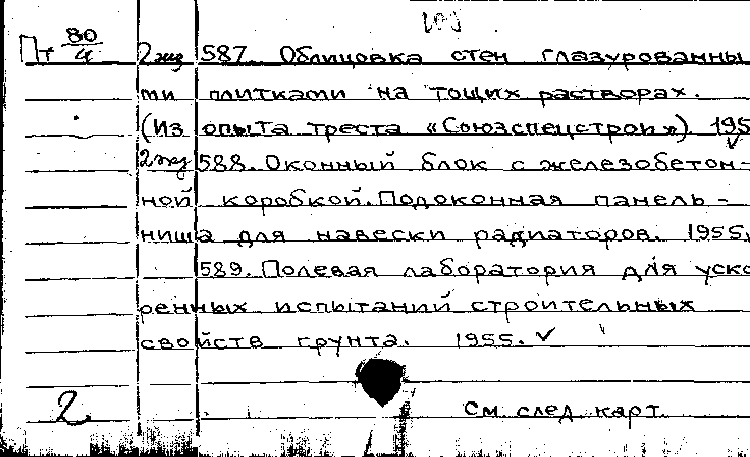 Пт 80/4
2 экз 587. Облицовка стен глазурованны
ми плитками на тощих растворах.
(Из опыта треста «Союзспецстрой»). 195
2 экз 588. Оконный блок с железобетон-
ной коробкой. Подоконная панель-
ниша для навески радиаторов. 1955.
589. Полевая лаборатория для уско
ренных испытаний строительных
свойств грунта. 1955. ✓
2
См. след. карт.